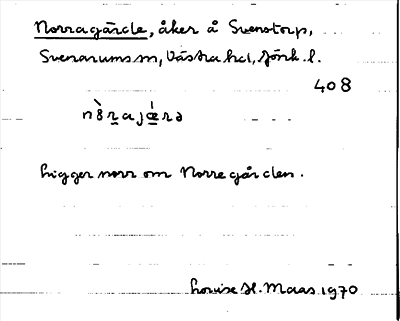 Norragärde, åker å Svenstorp,
Svenarums sn, Västra hd, Jönk. l.
408
Ligger norr om Norregården.
Louise H. Maas 1970